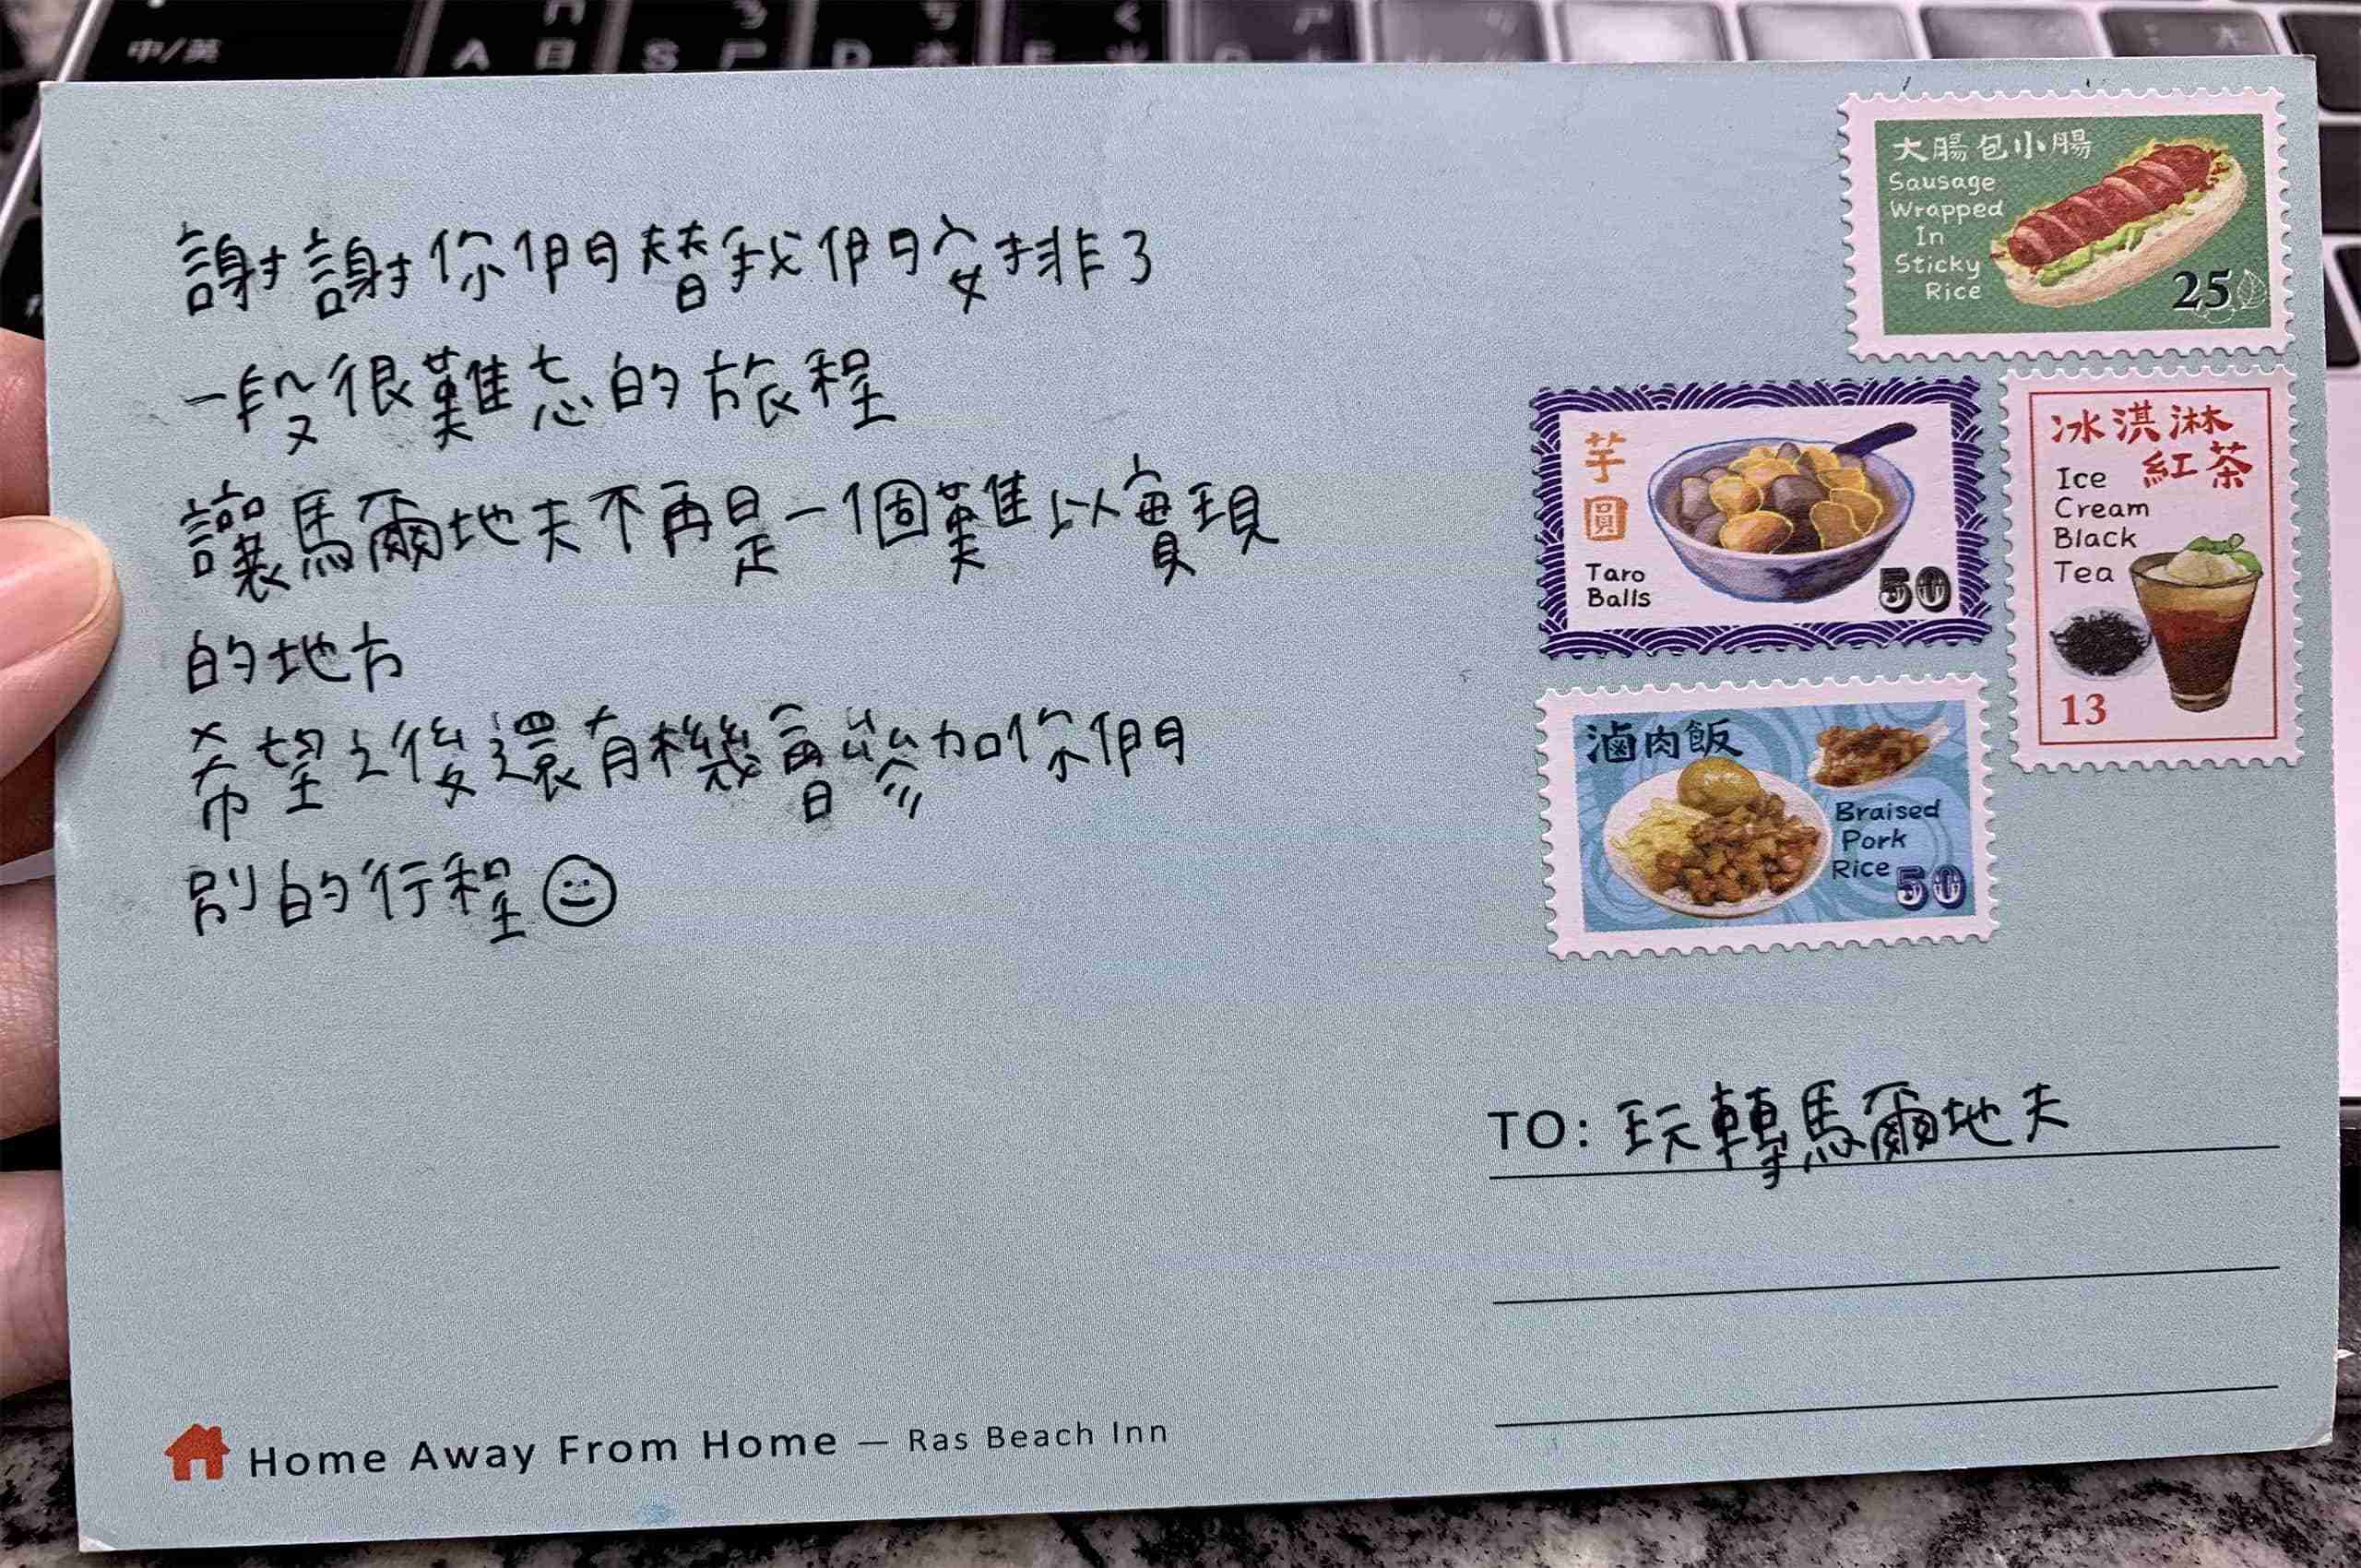 中/英
A 日 S 尸 D 木
謝謝你們替我們安排了
一段很難忘的旅程
讓馬爾地夫不再是一個難以實現
的地方
希望之後還有機會參加你們
別的行程
大腸包小腸
Sausage
Wrapped
In
Sticky
Rice
25
芋圓
Taro
Balls
50
冰淇淋
紅茶
Ice
Cream
Black
Tea
13
滷肉飯
Braised
Pork
Rice
50
TO: 玩轉馬爾地夫
Home Away From Home — Ras Beach Inn